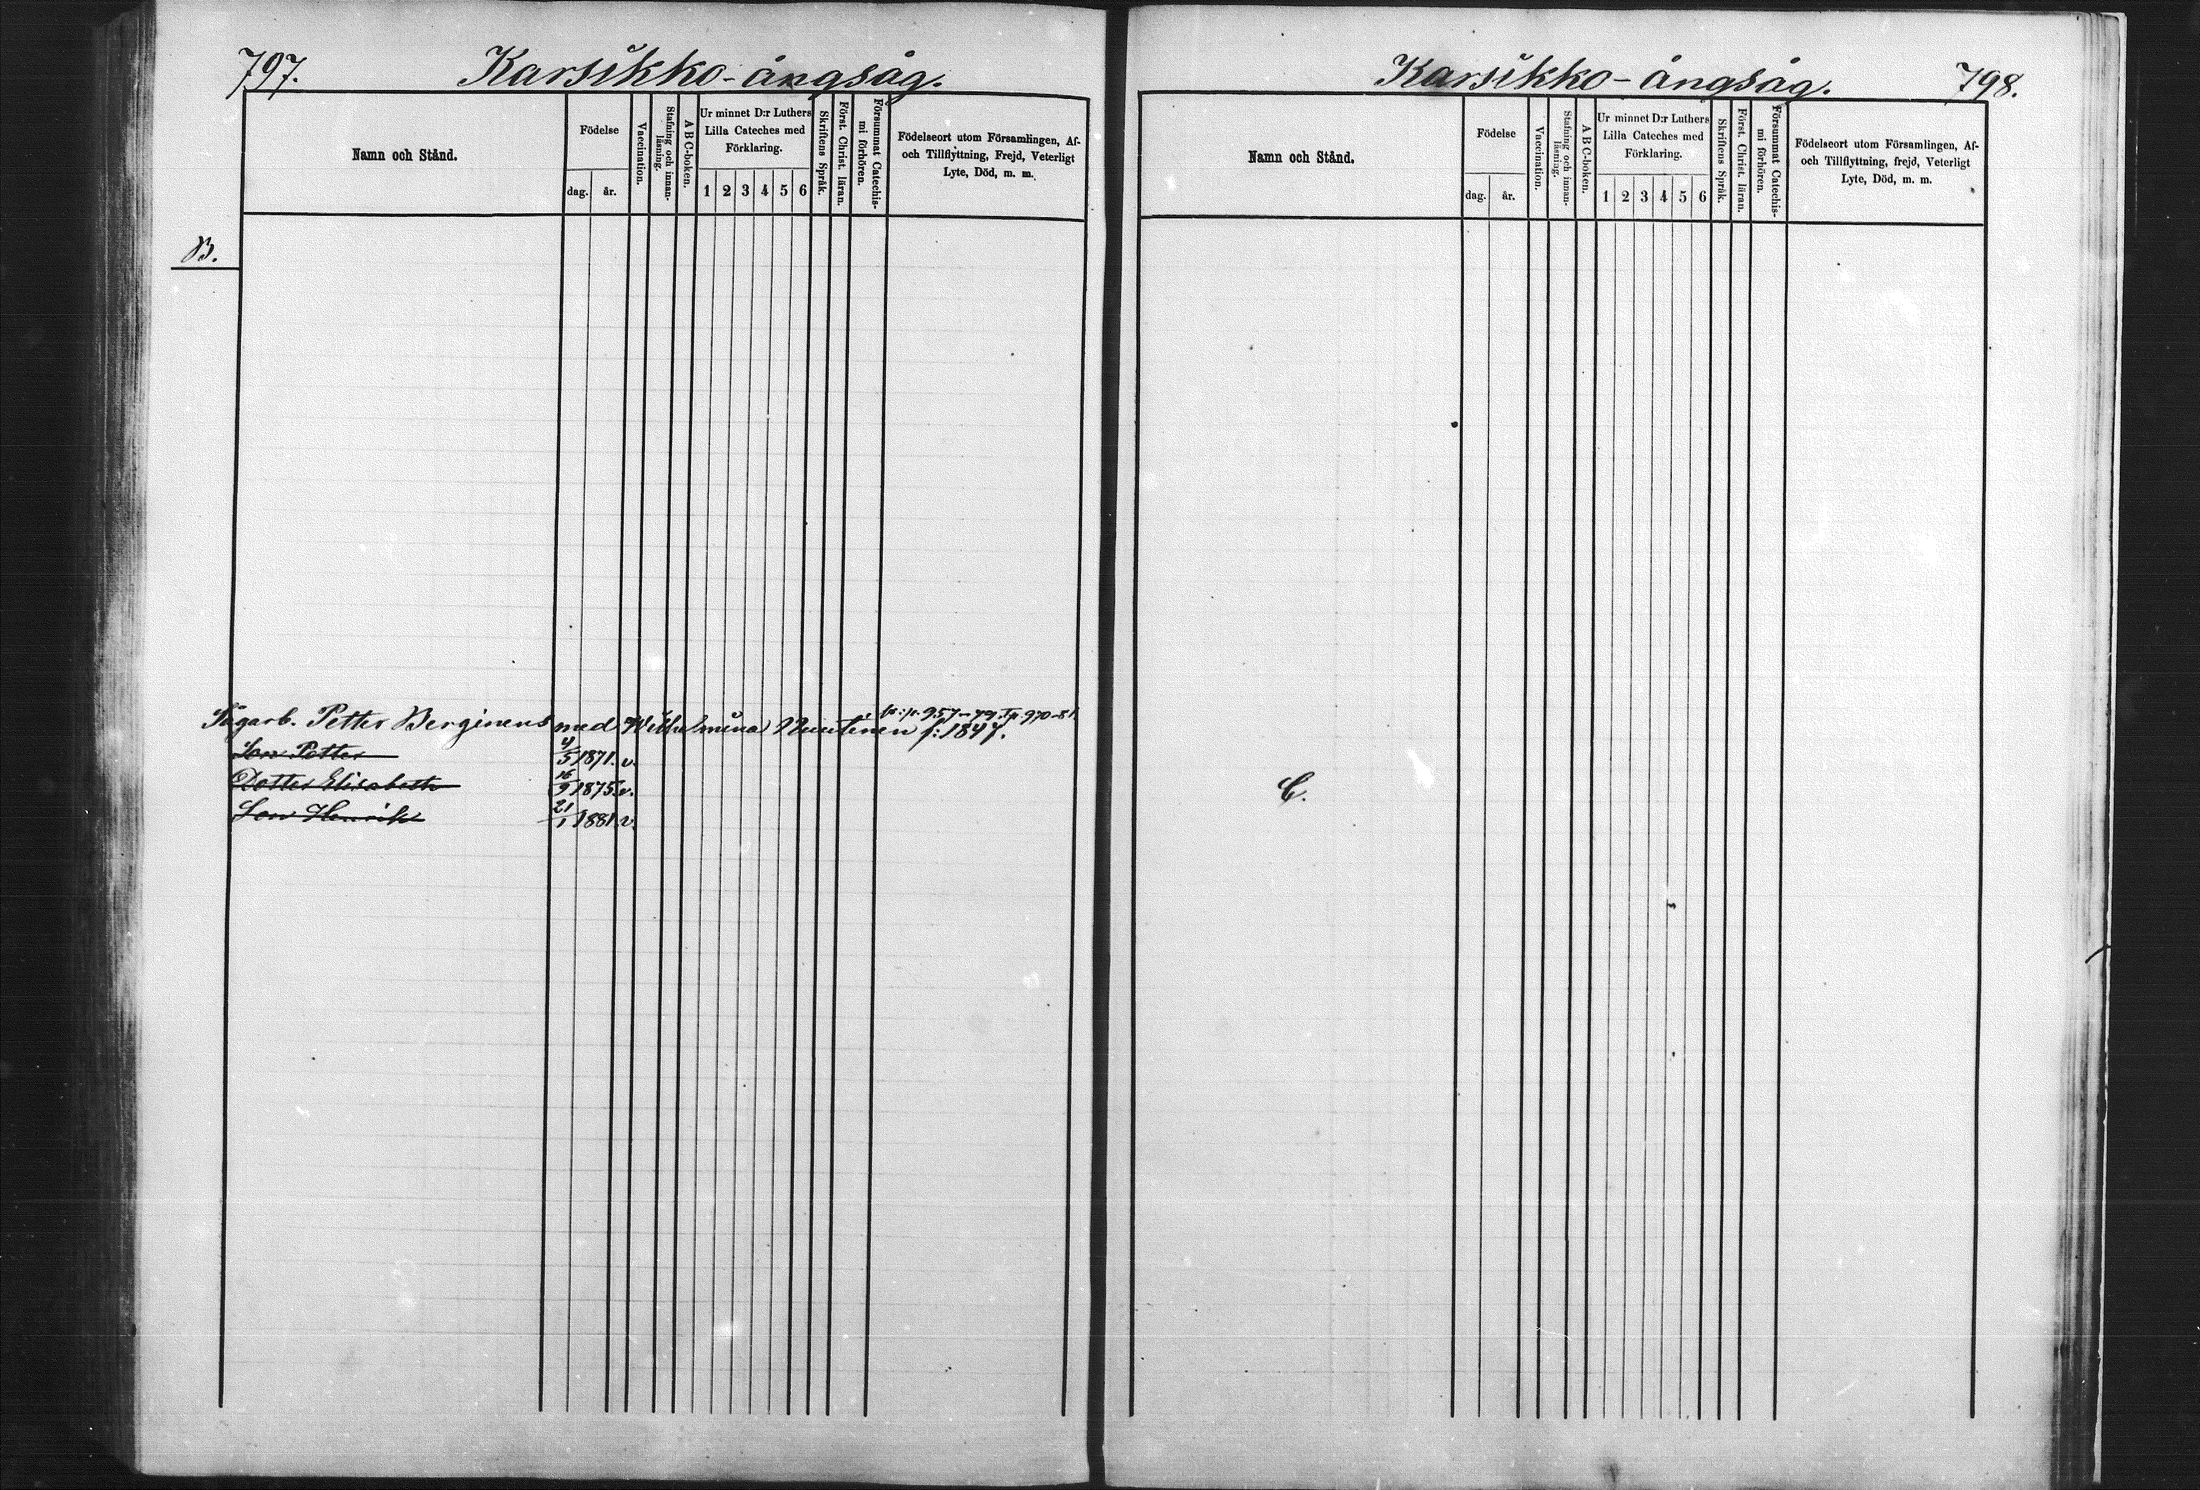 797.
Karsikko-ångsåg.
Namn och Stånd.
Födelse
dag.
år.
Vaccination.
Stafning och innan-
läsning.
A B C-boken.
Ur minnet D:r Luthers
Lilla Cateches med
Förklaring.
1 2 3 4 5 6
Skriftens Språk.
Först. Christ. läran.
Försummat Catechis-
mi förhören.
Födelseort utom Församlingen, Af-
och Tillflyttning, Frejd, Veterligt
Lyte, Död, m. m.
B.
fr: p. 957-79. T.p. 970-81.
Sågarb. Petter Berginens med Wilhelmina Nuutinen f: 1847.
Son Petter 4/5 1871. v.
Dotter Elisabeth 16/9 1875. v.
Son Henrik 21/1 1881. v.
Karsikko-ångsåg.
798.
Namn och Stånd.
Födelse
dag.
år.
Vaccination.
Stafning och innan-
läsning.
A B C-boken.
Ur minnet D:r Luthers
Lilla Cateches med
Förklaring.
1 2 3 4 5 6
Skriftens Språk.
Först. Christ. läran.
Försummat Catechis-
mi förhören.
Födelseort utom Församlingen, Af-
och Tillflyttning, frejd, Veterligt
Lyte, Död, m. m.
C.